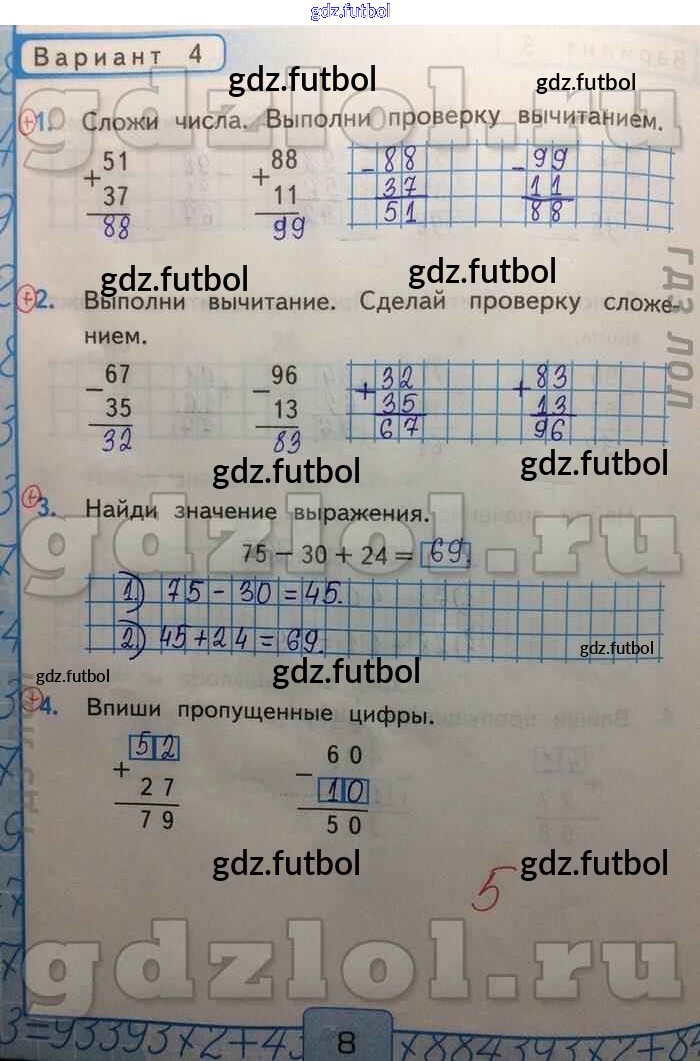 gdz.futbol
Вариант 4
gdz.futbol gdz.futbol
gdzlol.ru
+1. Сложи числа. Выполни проверку вычитанием.
51 88 88 99
+ + - -
37 11 37 11
88 99 51 88
gdz.futbol gdz.futbol
+2. Выполни вычитание. Сделай проверку сложе-
нием.
67 96 32 83
- - + +
35 13 35 13
32 83 67 96
gdz.futbol gdz.futbol
гдз лол
+3. Найди значение выражения.
gdzlol.ru
75 – 30 + 24 = 69.
1) 75 - 30 = 45.
2) 45 + 24 = 69.
gdz.futbol gdz.futbol gdz.futbol
+4. Впиши пропущенные цифры.
52 60
+ -
27 10
79 50
гдз лол
gdz.futbol gdz.futbol
5
gdzlol.ru
8